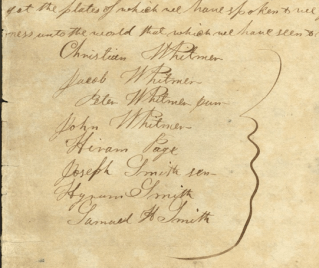 got the plates of which we have spoken & we
ness unto the world that which we have seen &
Christian Whitmer
Jacob Whitmer
Peter Whitmer jun
John Whitmer
Hiram Page
Joseph Smith sen
Hyrum Smith
Samuel H Smith